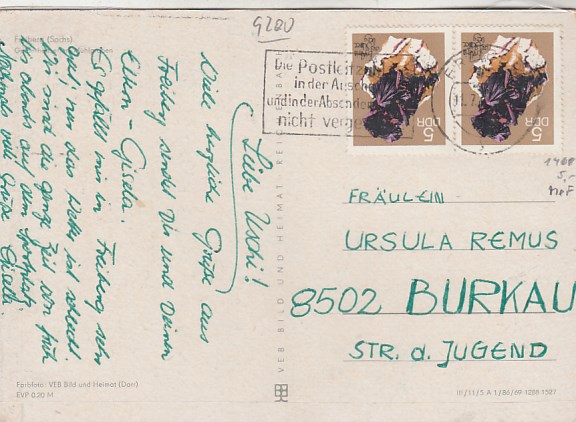 9200
Freiberg (Sachs)
Liebe Uschi!
Viele herzliche Grüße aus
Freiberg sendet Dir und Deinen
Eltern - Gisela.
Es gefällt mir in Freiberg sehr
gut, nur das Wetter ist schlecht.
Wir sind die ganze Zeit von früh
bis abends auf dem Sportplatz.
Nochmals viele Grüße Gisela.
Farbfoto: VEB Bild und Heimat (Darr)
EVP 0.20 M
VEB BILD UND HEIMAT REICHENBACH
Die Postleitzahl
in der Anschrift
und in der Absenderangabe
nicht vergessen
5 DDR
5 DDR
1969
5,-
FRÄULEIN
URSULA REMUS
8502 BURKAU
STR. d. JUGEND
III/11/5 A 1/B6/69 1226 1527